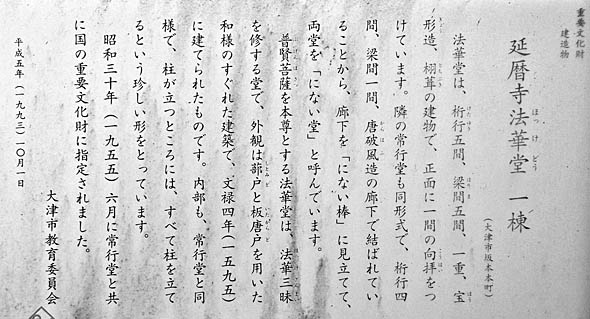 重要文化財
建造物
延暦寺法華堂 一棟
ほっけどう
(大津市坂本本町)
法華堂は、桁行五間、梁間五間、一重、宝
形造、栩葺の建物で、正面に一間の向拝をつ
けています。隣の常行堂も同形式で、桁行四
間、梁間一間、唐破風造の廊下で結ばれてい
ることから、廊下を「にない棒」に見立てて、
両堂を「にない堂」と呼んでいます。
普賢菩薩を本尊とする法華堂は、法華三昧
を修する堂で、外観は蔀戸と板唐戸を用いた
和様のすぐれた建築で、文禄四年(一五九五)
に建てられたものです。内部も、常行堂と同
様で、柱が立つところには、すべて柱を立て
るという珍しい形をとっています。
昭和三十年(一九五五)六月に常行堂と共
に国の重要文化財に指定されました。
大津市教育委員会
平成五年(一九九三)一〇月一日